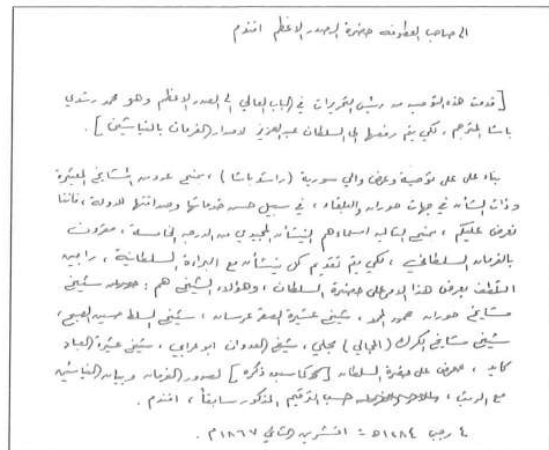 الى صاحب العطوفه حضرة الصدر الاعظم افندم
[قدمت هذه التوصيه من رئيس التحريرات في الباب العالي الى الصدر الاعظم وهو محمد رشدي
باشا المترجم، لكي يتم رفعها الى السلطان عبدالعزيز لاصدار الفرمان بالنياشين].
بناء على على توصية وعرض والي سورية (راشد باشا)، بمنح عدد من المشايخ المعتبرة
وذات الشأن في جهات حوران والبلقاء، في سبيل حسن خدماتها وصداقتها للدولة، فاننا
نعرض عليكم، بمنح التاليه اسماءهم النيشان المجيدي من الدرجه الخامسة، مقرونه
بالفرمان السلطاني، لكي يتم تقديم كل نيشان مع البراءة السلطانية، راجين
التلطف بعرض هذا الامر على حضرة السلطان، وهؤلاء الشيخ هم: شيخ
مشايخ حوران، شيخ عشيرة الصقر عرسان، شيخ السلط حسين الصبح،
شيخ مشايخ الكرك (المجالي) مجلي، شيخ العدوان ابو عرابي، شيخ عشيرة العباد
كايد، للعرض على حضرة السلطان [كما سبق ذكره] لصدور الفرمان وبيان النياشين
مع الرتب، حسب الترقيم المذكور سابقاً، افندم.
٤ رجب ١٢٨٤هـ = ١ تشرين الثاني ١٨٦٧م.